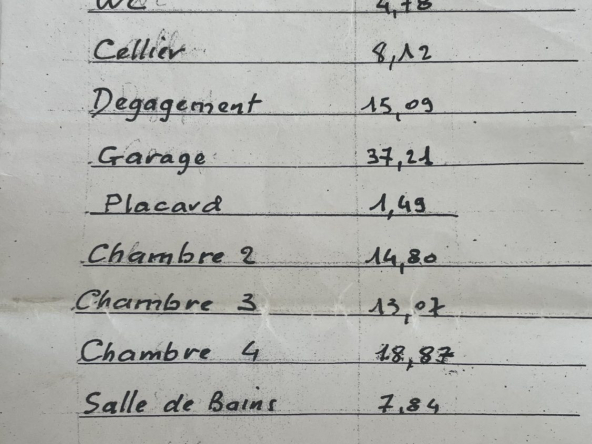 WC 4,78
Cellier 8,12
Degagement 15,09
Garage 37,21
Placard 1,49
Chambre 2 14,80
Chambre 3 13,07
Chambre 4 18,87
Salle de Bains 7,84